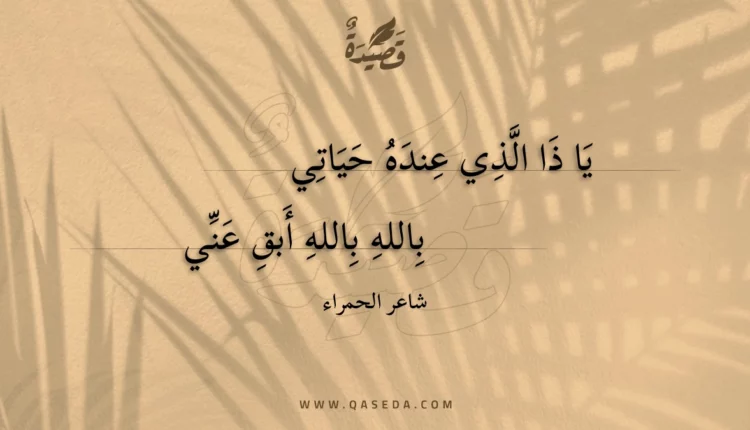 قَصِيْدَةٌ
يَا ذَا الَّذِي عِندَهُ حَيَاتِي
بِاللهِ بِاللهِ أَبقِ عَنِّي
شاعر الحمراء
WWW.QASEDA.COM